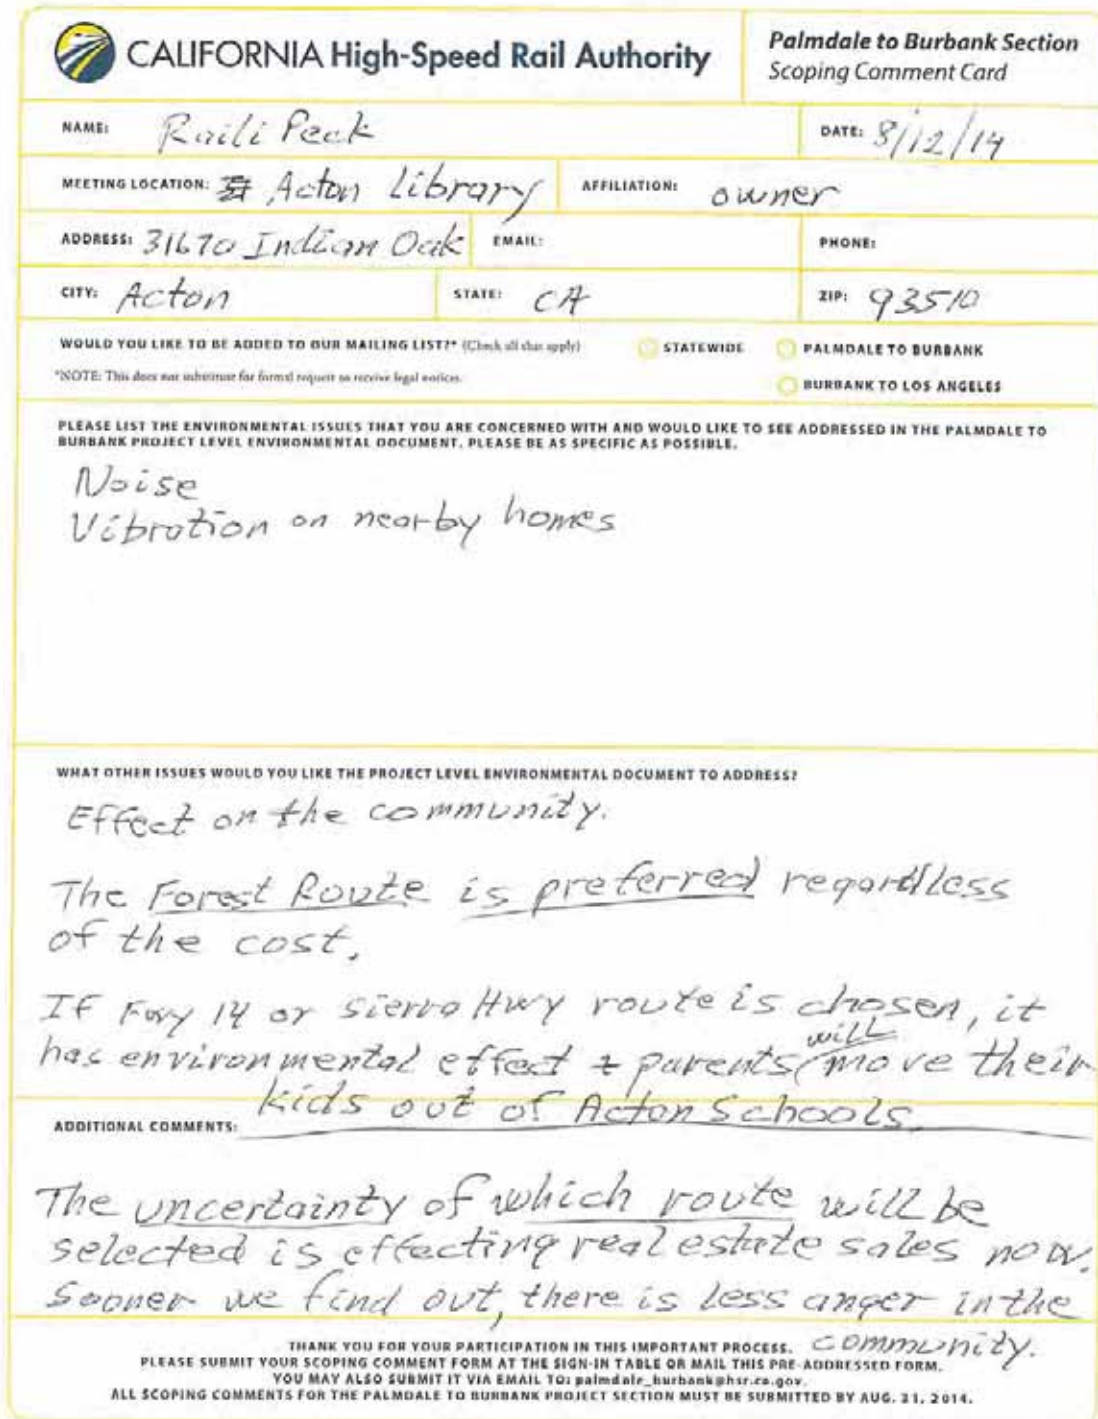 CALIFORNIA High-Speed Rail Authority
Palmdale to Burbank Section
Scoping Comment Card
NAME: Raili Peck
DATE: 8/12/14
MEETING LOCATION: Acton Library
AFFILIATION: owner
ADDRESS: 31670 Indian Oak
EMAIL:
PHONE:
CITY: Acton
STATE: CA
ZIP: 93510
WOULD YOU LIKE TO BE ADDED TO OUR MAILING LIST?* (Check all that apply)
STATEWIDE
PALMDALE TO BURBANK
*NOTE: This does not substitute for formal request to receive legal notices.
BURBANK TO LOS ANGELES
PLEASE LIST THE ENVIRONMENTAL ISSUES THAT YOU ARE CONCERNED WITH AND WOULD LIKE TO SEE ADDRESSED IN THE PALMDALE TO
BURBANK PROJECT LEVEL ENVIRONMENTAL DOCUMENT. PLEASE BE AS SPECIFIC AS POSSIBLE.
Noise
Vibration on nearby homes
WHAT OTHER ISSUES WOULD YOU LIKE THE PROJECT LEVEL ENVIRONMENTAL DOCUMENT TO ADDRESS?
Effect on the community.
The Forest Route is preferred regardless
of the cost.
If Fwy 14 or Sierra Hwy route is chosen, it
has environmental effect + parents will move their
kids out of Acton Schools.
ADDITIONAL COMMENTS:
The uncertainty of which route will be
selected is effecting real estate sales now.
Sooner we find out, there is less anger in the
community.
THANK YOU FOR YOUR PARTICIPATION IN THIS IMPORTANT PROCESS.
PLEASE SUBMIT YOUR SCOPING COMMENT FORM AT THE SIGN-IN TABLE OR MAIL THIS PRE-ADDRESSED FORM.
YOU MAY ALSO SUBMIT IT VIA EMAIL TO: palmdale_burbank@hsr.ca.gov.
ALL SCOPING COMMENTS FOR THE PALMDALE TO BURBANK PROJECT SECTION MUST BE SUBMITTED BY AUG. 31, 2014.